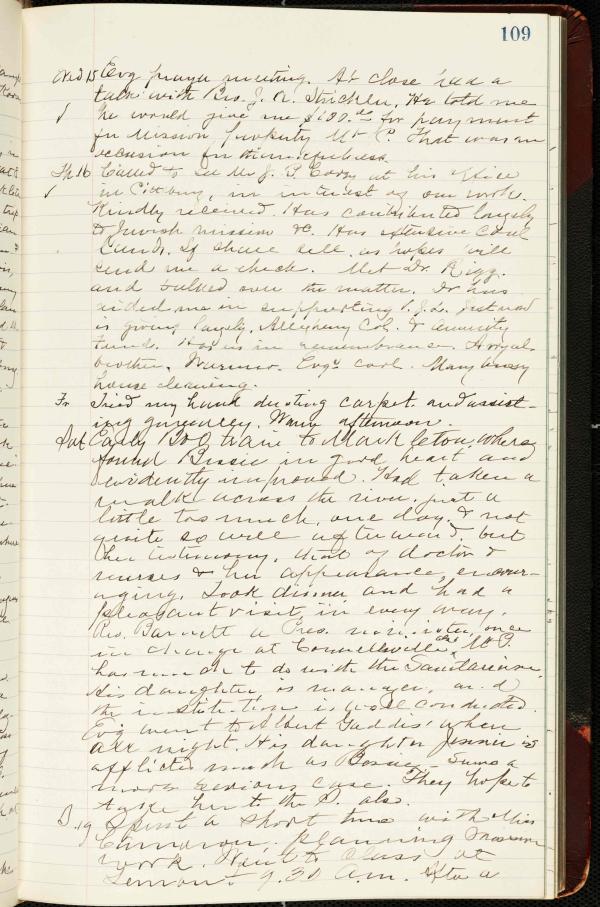 109
Wed 15 Evg prayer meeting. At close had a
talk with Bro. J. R. Strickler. He told me
he would give me $100.00 for payment
for Mission property Mt P. That was an
occasion for thankfulness.
Th. 16 Called to see Mr J. S. at his office
in Pittsburg, in interest of our work.
Kindly received. Has contributed largely
to Jewish mission &c. Has extensive Coal
Lands. If shall sell, as hopes will
send me a check. Met Dr. Rigg.
and talked over the matter. Dr has
aided me in supporting just now
is giving largely, Allegheny Col. & annuity
fund. Has us in remembrance. A royal
brother. Warmer. Evg cool. Mary busy
house cleaning.
Fr Tried my hand dusting carpet and assist-
ing generally. Warm afternoon.
Sat Early B & O train to Markleton, where
found Bessie in good heart and
evidently improved. Had taken a
walk across the river, just a
little too much, one day, & not
quite so well afterward, but
her testimony, that of doctor &
nurses & her appearance, encour-
aging. Took dinner and had a
pleasant visit, in every way.
Rev. Barnett a Pres. minister, once
in charge at Connellsville and Mt P.
has much to do with the Sanitarium.
His daughter is manager, and
the institution is well conducted.
Evg went to Albert Gaddis' where
all night. His daughter Jennie is
afflicted much as Bessie - Seems a
more serious case. They hope to
take her to the S. also.
S. 19 Spent a short time with Miss
Cameron, planning Mission
work. Went to Class at
Lemont 9.30 a.m. After a